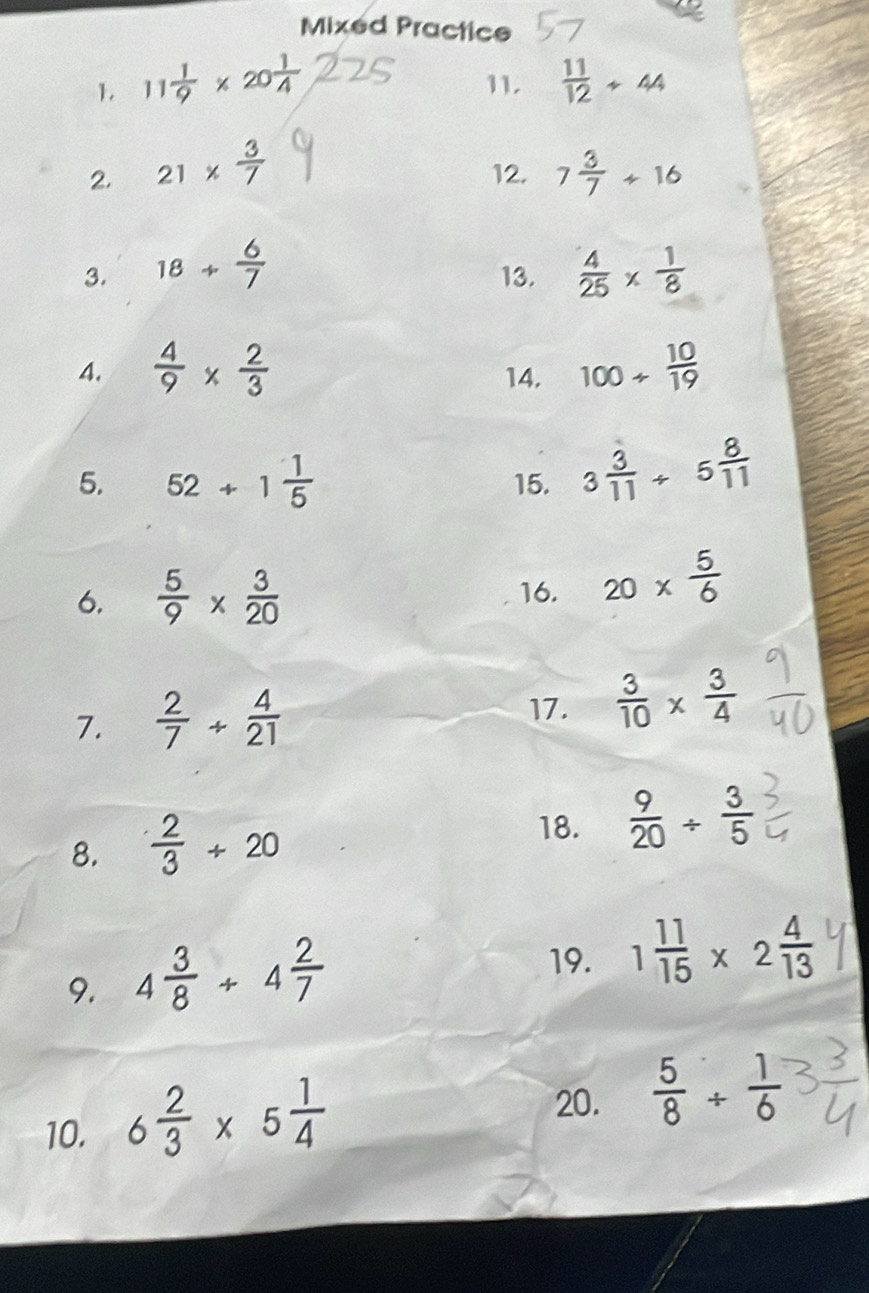 Mixed Practice 57
1. 11 1/9 × 20 1/4 225
2. 21 × 3/7 9
3. 18 ÷ 6/7
4. 4/9 × 2/3
5. 52 ÷ 1 1/5
6. 5/9 × 3/20
7. 2/7 ÷ 4/21
8. 2/3 ÷ 20
9. 4 3/8 ÷ 4 2/7
10. 6 2/3 × 5 1/4
11. 11/12 ÷ 44
12. 7 3/7 ÷ 16
13. 4/25 × 1/8
14. 100 ÷ 10/19
15. 3 3/11 ÷ 5 8/11
16. 20 × 5/6
17. 3/10 × 3/4 9/40
18. 9/20 ÷ 3/5 3/4
19. 1 11/15 × 2 4/13 4
20. 5/8 ÷ 1/6 3 3/4